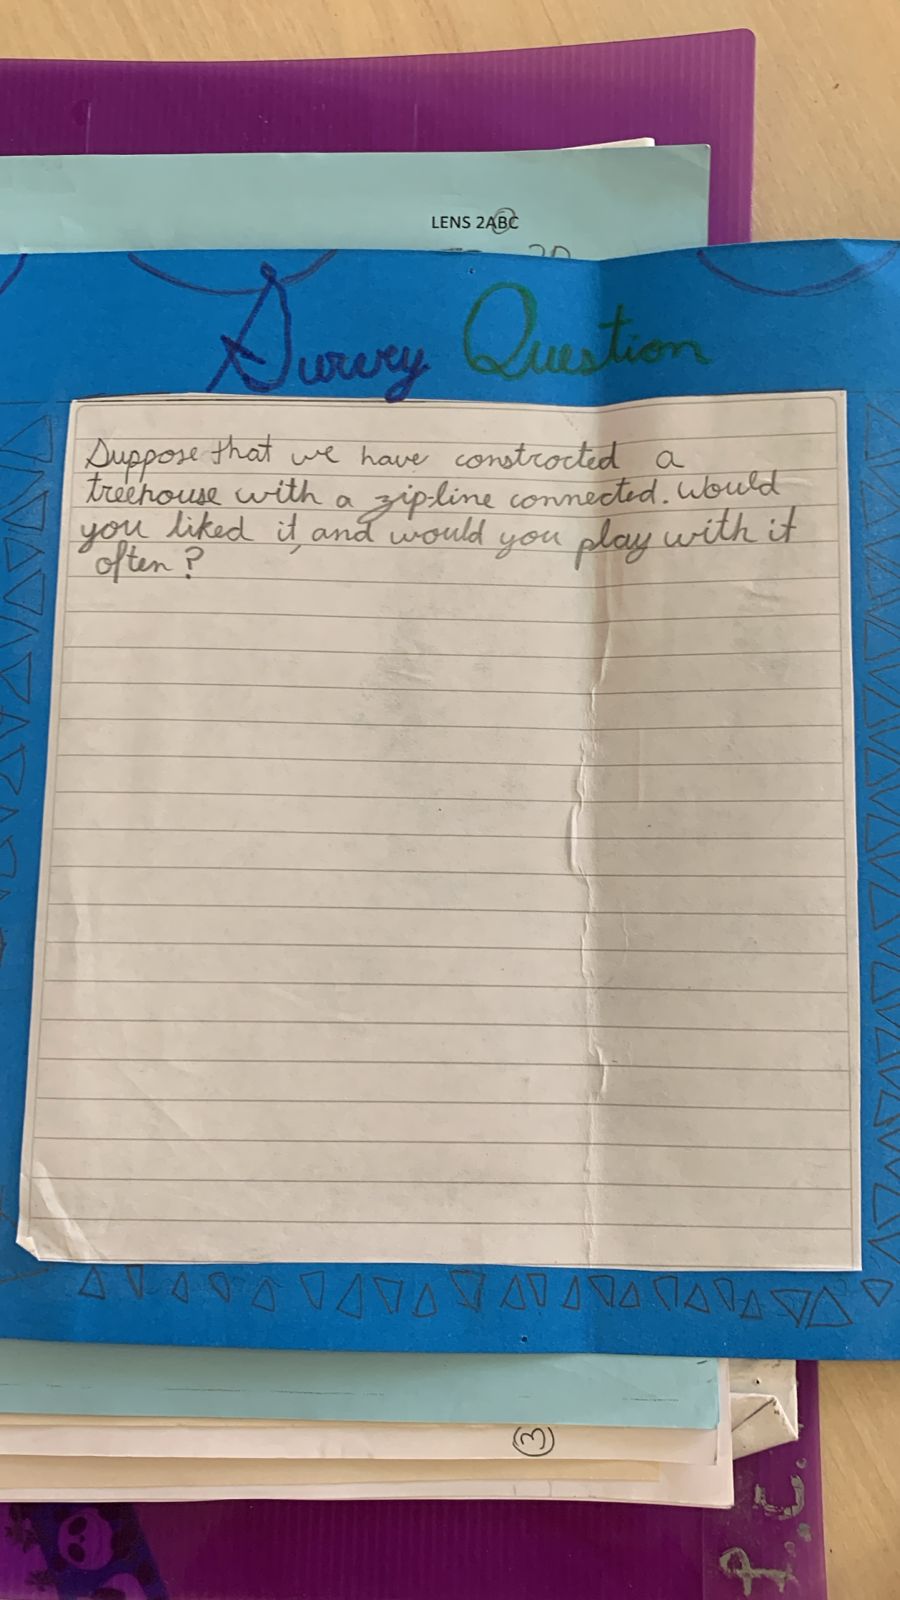 LENS 2ABC
20
Survey Question
Suppose that we have constrocted a
treehouse with a zip-line connected. Would
you liked it, and would you play with it
often?
3
P.C.